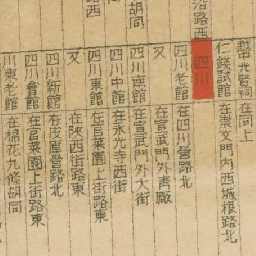 路西
胡同
路西
先賢祠 在同上
仁錢試館 在崇文門內西城根路北
四川
四川老館 在四川營路北
又 在宣武門外青廠
四川 館 在宣武門外大街
四川中館 在永光寺西街
四川東館 在官菜園上街路東
又 在陝西街路東
四川新館 在皮庫營路北
四川會館 在官菜園上街路東
川東老館 在棉花九條胡同